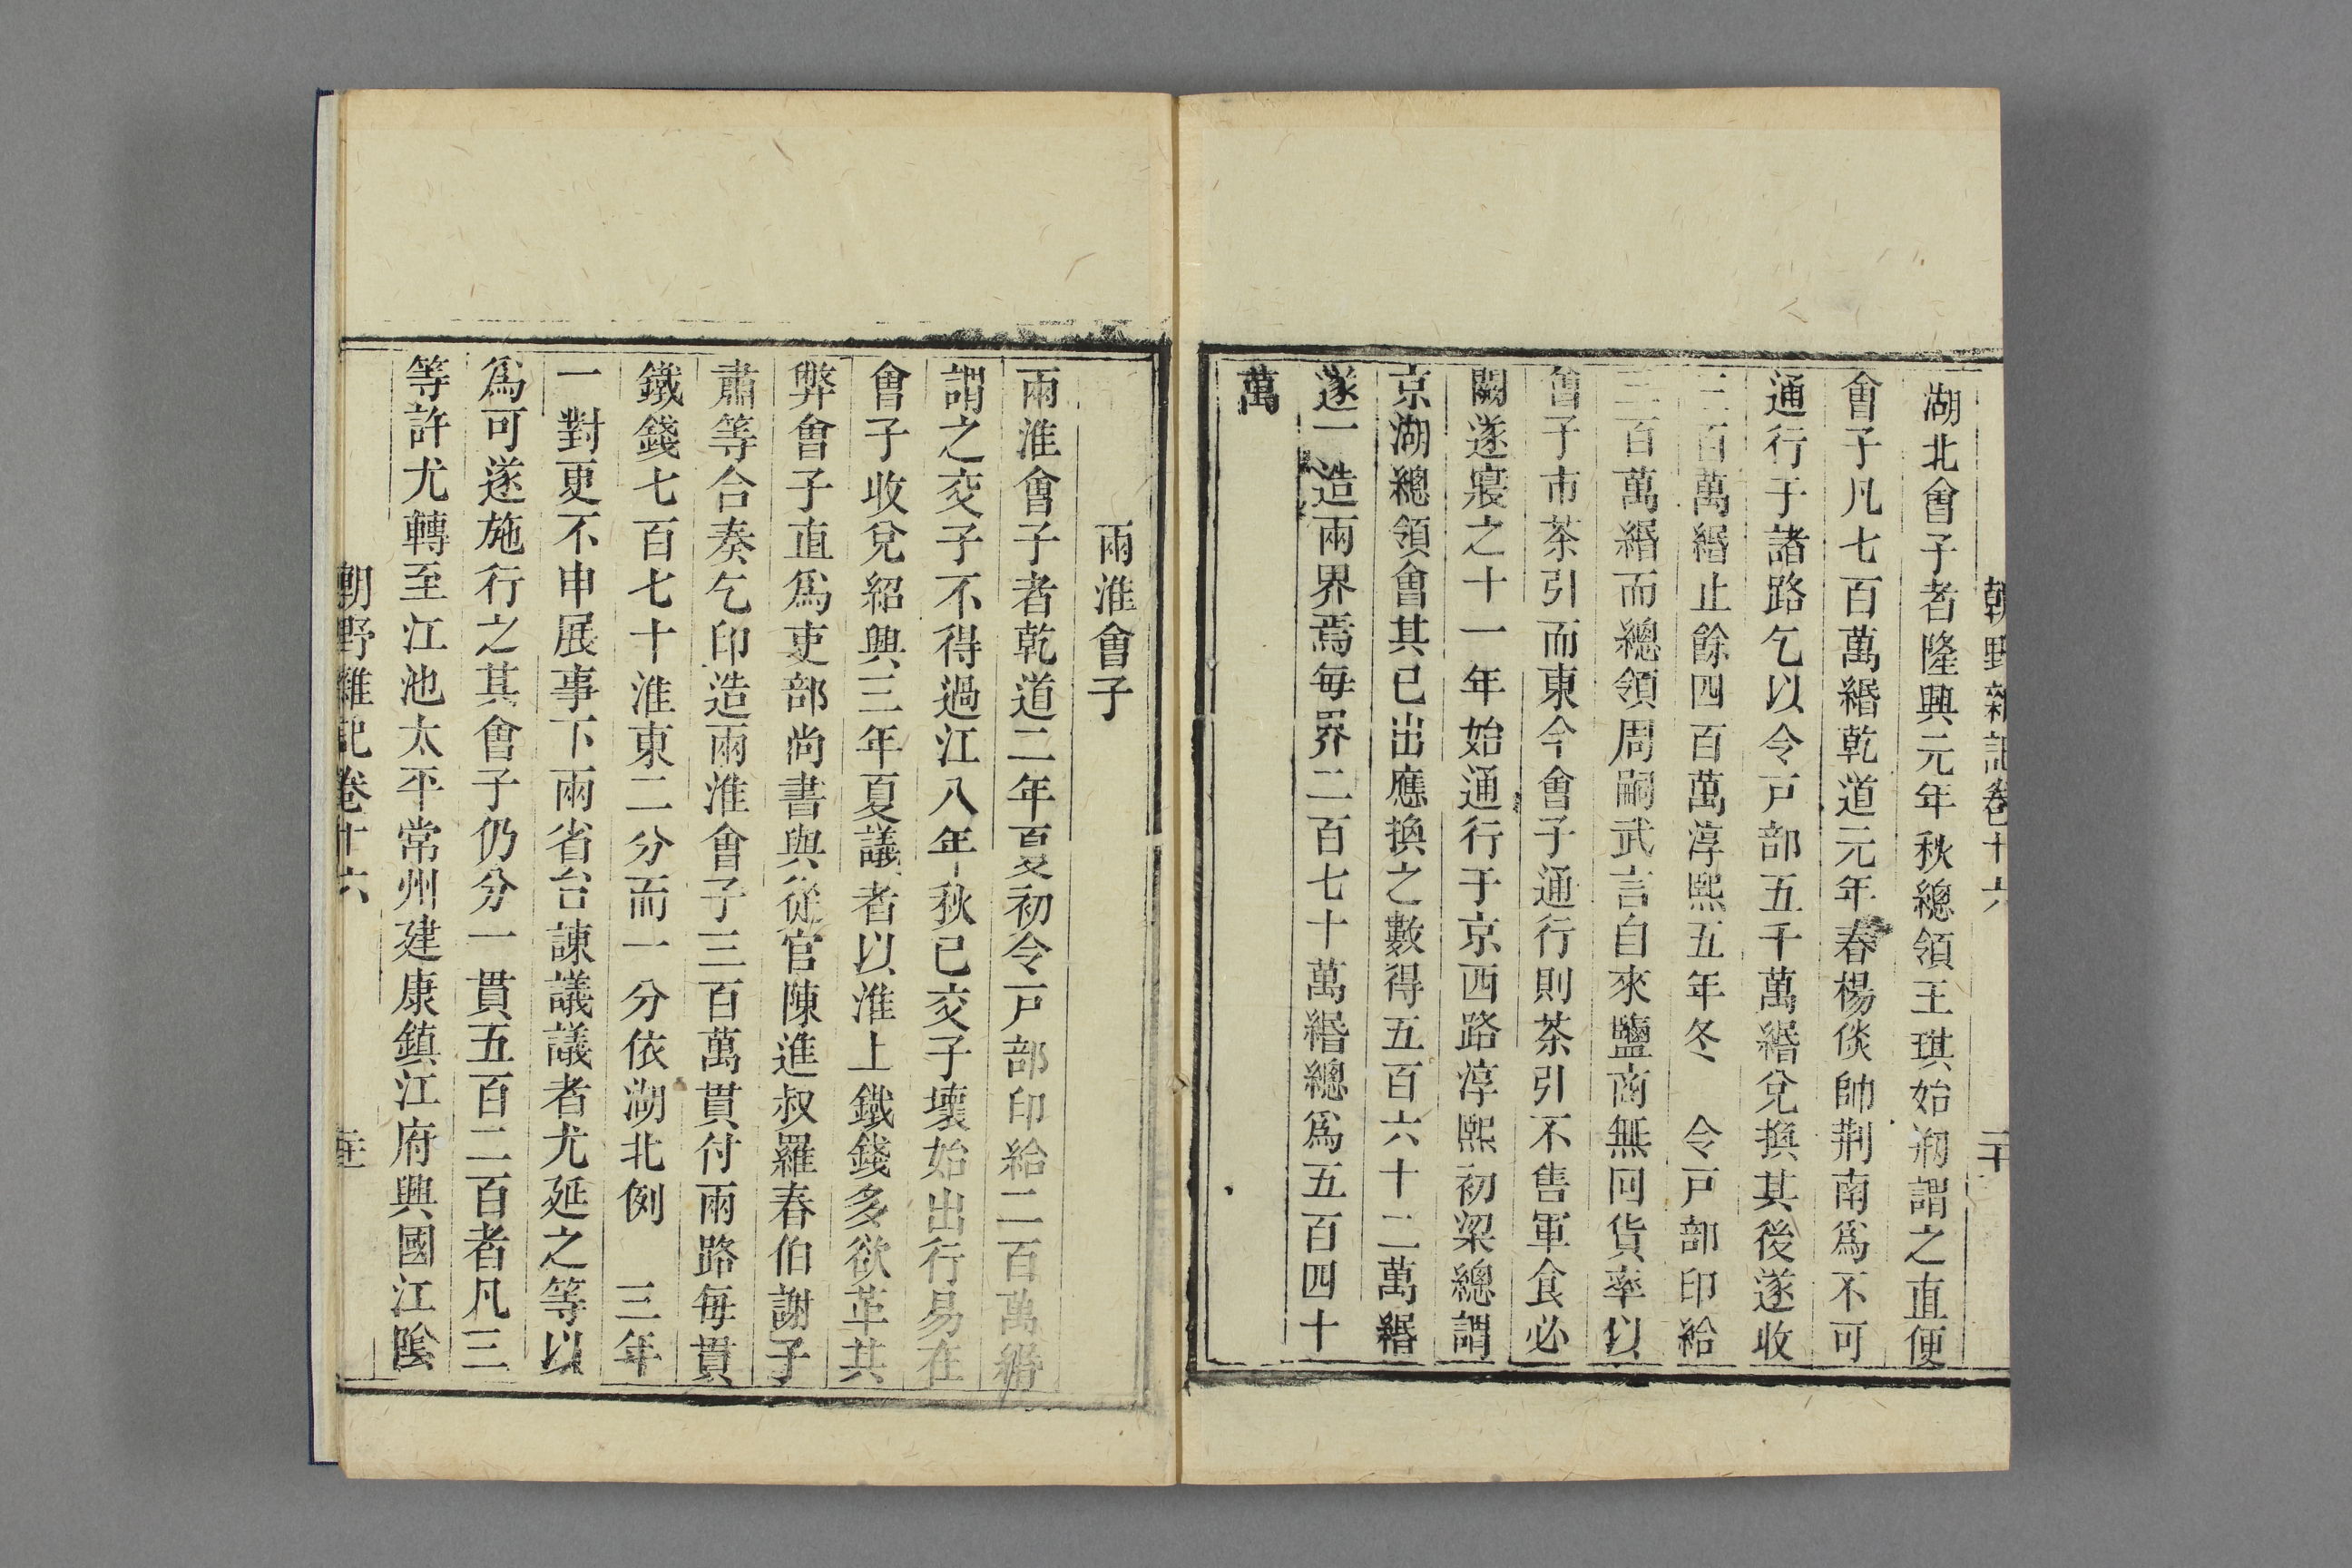 朝野雜記卷十六 二十
湖北會子者隆興元年秋總領王琪始剏謂之直便
會子凡七百萬緡乾道元年春楊倓帥荆南爲不可
通行于諸路乞以令戸部五千萬緡兌換其後遂收
三百萬緡止餘四百萬淳熙五年冬 令戸部印給
三百萬緡而總領周嗣武言自來鹽商無回貨率以
會子市茶引而東今會子通行則茶引不售軍食必
闕遂寢之十一年始通行于京西路淳熙初梁總謂
京湖總領會其已出應換之數得五百六十二萬緡
遂一造兩界焉每界二百七十萬緡總爲五百四十
萬
兩淮會子
兩淮會子者乾道二年夏初令戸部印給二百萬緡
謂之交子不得過江八年秋已交子壞始出行易在
會子收兌紹興三年夏議者以淮上鐵錢多欲革其
弊會子直爲吏部尚書與從官陳進叔羅春伯謝子
肅等合奏乞印造兩淮會子三百萬貫付兩路每貫
鐵錢七百七十淮東二分而一分依湖北例 三年
一對更不申展事下兩省台諫議議者尤延之等以
爲可遂施行之其會子仍分一貫五百二百者凡三
等許尤轉至江池太平常州建康鎮江府興國江陰
朝野雜記卷十六